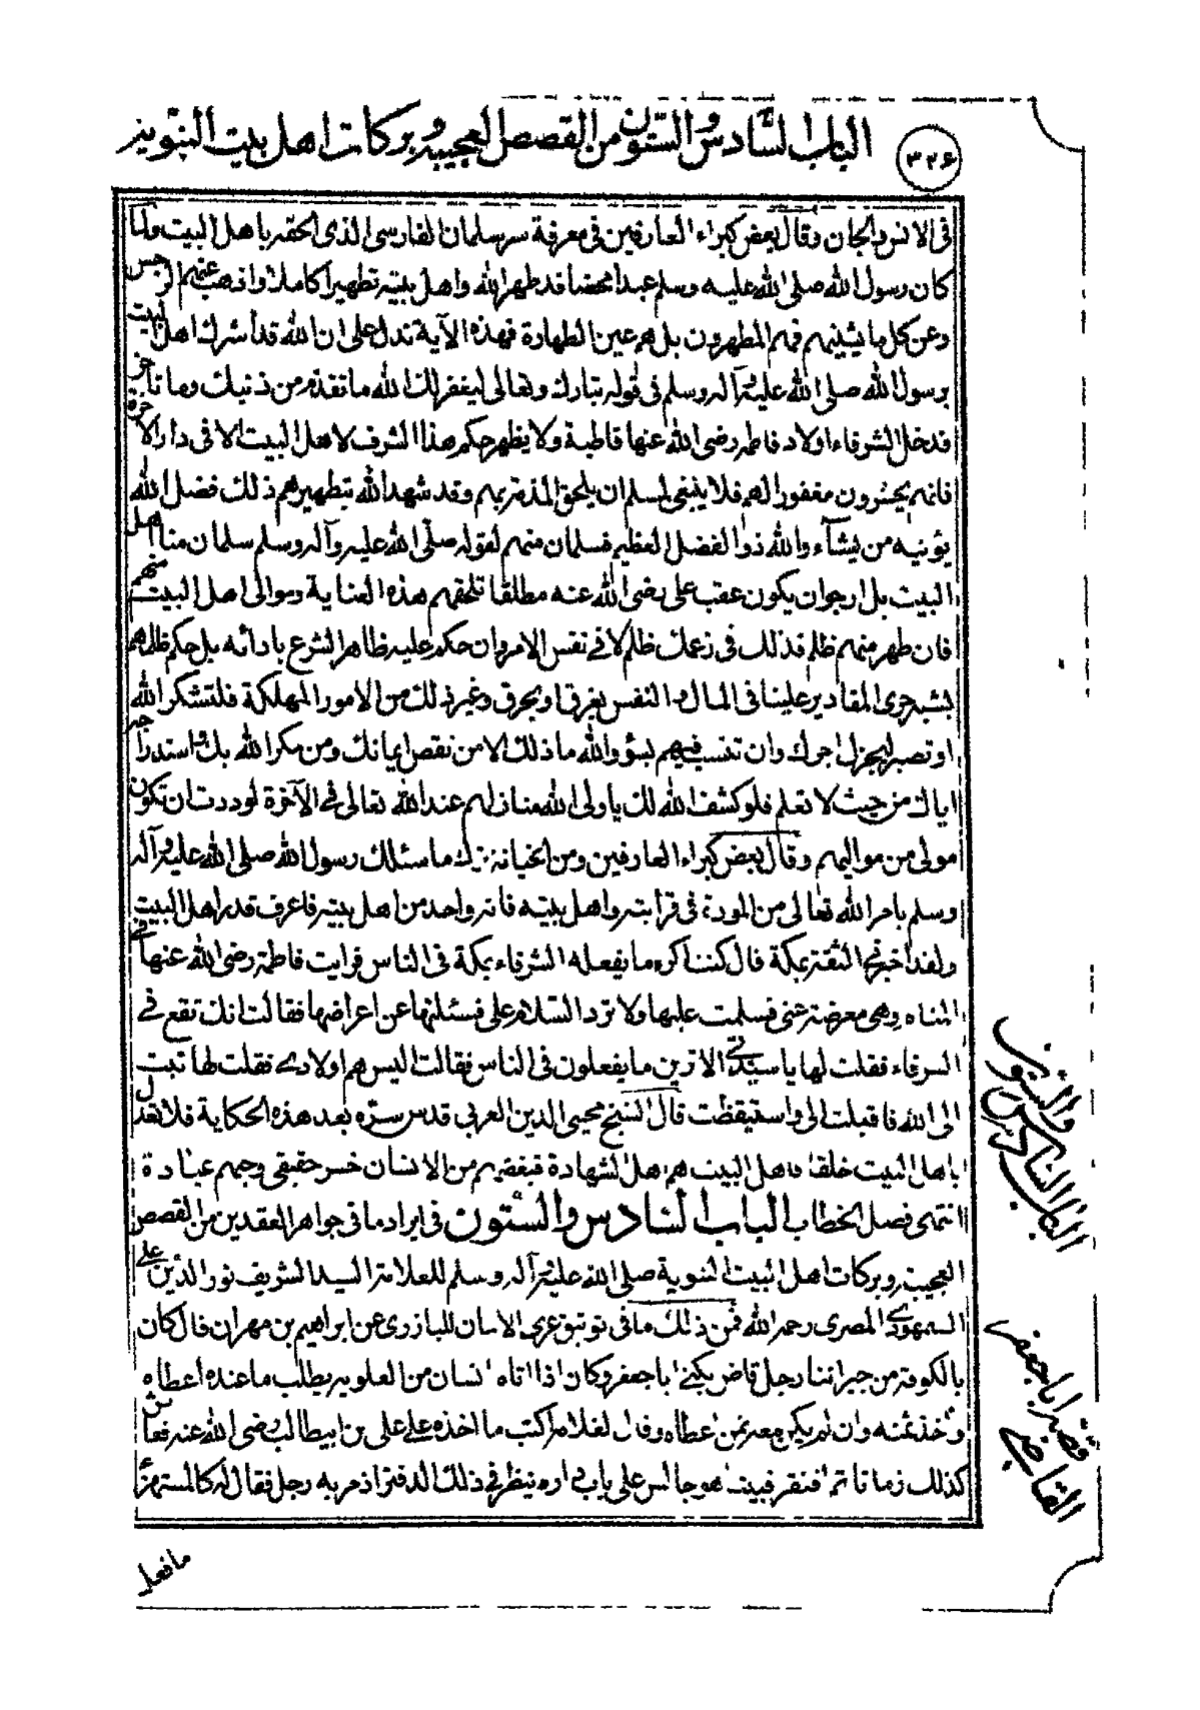 ٣٢٦
الباب السادس والستون من القصص العجيبة وبركات اهل بيت النبوية
فى الانس والجان وقال بعض كبراء العارفين فى معرفة سر سلمان الفارسى الذى الحقه باهل البيت ولما
كان رسول الله صلى الله عليه وسلم عبدا محضا قد طهره الله واهل بيته تطهيرا كاملا واذهب عنهم الرجس
وعن كل ما يشينهم فهم المطهرون بل هم عين الطهارة فهذه الآية تدل على ان الله قد أشرك اهل البيت
برسول الله صلى الله عليه وآله وسلم فى قوله تبارك وتعالى ليغفر لك الله ما تقدم من ذنبك وما تأخر
فدخل الشرفاء اولاد فاطمه رضى الله عنها قاطبة ولا يظهر حكم هذا الشرف لاهل البيت الا فى دار الآخرة
فانهم يحشرون مغفورا لهم فلا ينبغى لمسلم ان يلحق المذمة بهم وقد شهد الله بتطهيرهم ذلك فضل الله
يؤتيه من يشآء والله ذو الفضل العظيم فسلمان منهم لقوله صلى الله عليه وآله وسلم سلمان منا اهل
البيت بل ارجو ان يكون عقب على رضى الله عنه مطلقا تلحقهم هذه العناية وموالى اهل البيت منهم
فان ظهر منهم ظلم فذلك فى زعمك ظلم لا فى نفس الامر وان حكم عليه ظاهر الشرع بادائه بل حكم ظلمهم
يشبه جرى المقادير علينا فى المال والنفس بغرق او بحرق وغير ذلك من الامور المهلكة فلتشكر الله
او تصبر ليجزل اجرك وان تنسب فيهم بسوء والله ما ذلك الا من نقص ايمانك ومن مكر الله بك واستدراجه
اياك من حيث لا تعلم فلو كشف الله لك يا ولى الله منازلهم عند الله تعالى فى الآخرة لوددت ان تكون
مولى من مواليهم وقال بعض كبراء العارفين ومن الخيانة ترك ما سئلك رسول الله صلى الله عليه وآله
وسلم بامر الله تعالى من المودة فى قرابته واهل بيته فانه واحد من اهل بيته فاعرف قدر اهل البيت
ولقد اخبرنى الثقة بمكة قال كنت اكره ما يفعله الشرفاء بمكة فى الناس فرايت فاطمة رضى الله عنها فى
المنام وهى معرضة عنى فسلمت عليها ولا ترد السلام على فسئلتها عن اعراضها فقالت انك تقع فى
الشرفاء فقلت لها يا سيدتى الا ترين ما يفعلون فى الناس فقالت اليس هم اولادى فقلت لها تبت
الى الله فاقبلت الى واستيقظت قال الشيخ محيى الدين العربى قدس سره بعد هذه الحكاية فلا تعدل
باهل البيت خلقا فاهل البيت هم اهل الشهادة فبغضهم من الانسان خسر حقيقى وحبهم عبادة
انتهى فصل الخطاب الباب السادس والستون فى ايراد ما فى جواهر العقدين من القصص
العجيبة وبركات اهل البيت النبوية صلى الله عليه وآله وسلم للعلامة السيد الشريف نور الدين على
السمهودى المصرى رحمه الله فمن ذلك ما فى توثيق عرى الايمان للبازرى عن ابراهيم بن مهران قال كان
بالكوفة من جيراننا رجل قاض يكنى ابا جعفر وكان اذا اتاه انسان من العلوية يطلب ما عنده اعطاه
واخذ ثمنه وان لم يكن معه ثمن اعطاه وقال لغلامه اكتب ما اخذه على على بن ابيطالب رضى الله عنه فعاش
كذلك زمانا ثم افتقر فبينا هو جالس على باب داره ينظر فى ذلك الدفتر اذ مر به رجل فقال له كالمستهزئ
ما فعل
الباب السادس والستون
قصة ابا جعفر
القاضى